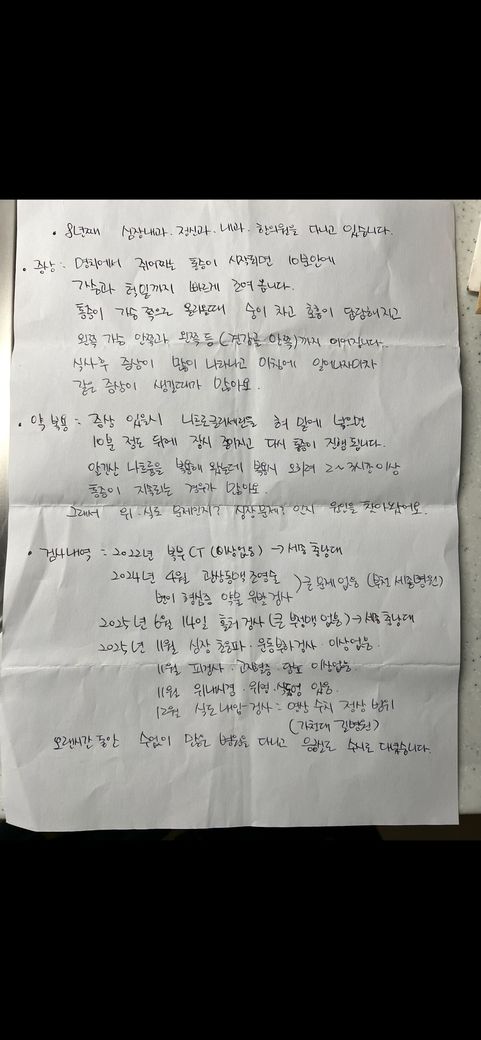 · 8년째 심장내과. 정신과. 내과. 한의원을 다니고 있습니다.
· 증상 : 명치에서 쥐어짜는 통증이 시작되면 10분안에
가슴과 턱밑까지 빠르게 조여 옵니다.
통증이 가슴 쪽으로 올라올때 숨이 차고 호흡이 답답해지고
왼쪽 가슴 안쪽과 왼쪽 등 (견갑골 안쪽)까지 이어집니다.
식사후 증상이 많이 나타나고 아침에 일어나자마자
같은 증상이 생길때가 많아요.
· 약 복용 = 증상 있을시 니트로글리세린을 혀 밑에 넣으면
10분 정도 뒤에 잠시 줄어지고 다시 통증이 진행 됩니다.
알긴산 나트륨을 복용해 왔는데 복용시 오히려 2~3시간 이상
통증이 지속되는 경우가 많아요.
그래서 위.식도 문제인지? 심장문제? 인지 원인을 찾아왔어요.
· 검사내역 = 2022년 복부 CT (이상없음) → 세종 충남대
2024년 4월 관상동맥 조영술
변이 협심증 약물 유발 검사
) 큰 문제 없음 (부천 세종병원)
2025년 6월 14일 홀터 검사 (큰 부정맥 없음) → 세종 충남대
2025년 11월 심장 초음파. 운동부하검사. 이상없음.
11월 피검사. 고지혈증. 당뇨 이상없음
11월 위내시경. 위염.식도염 있음.
12월 식도 내압 검사 = 연상 수치 정상 범위
(가천대 길병원)
오랜시간 동안 수없이 많은 병원을 다니고 응급실도 수시로 다녔습니다.